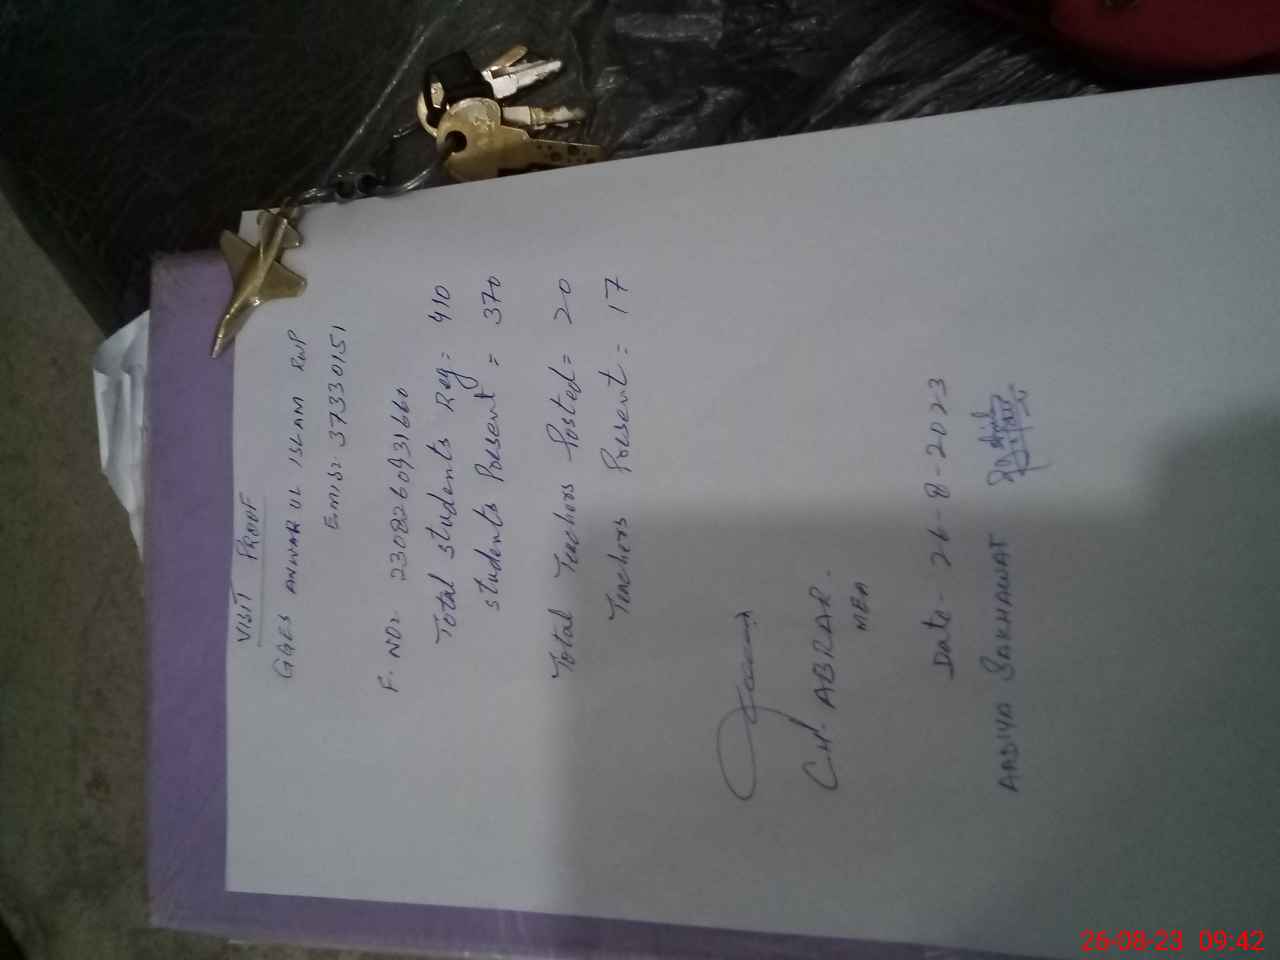 VISIT PROOF
GGES ANWAR UL ISLAM RWP
Emis: 37330151
F. NO: 2308260931660
Total Students Reg = 410
Students Present = 370
Total Teachers Posted = 20
Teachers Present = 17
CH. ABRAR.
MEA
Date - 26-8-2023
SAKHAWAT
26-08-23 09:42